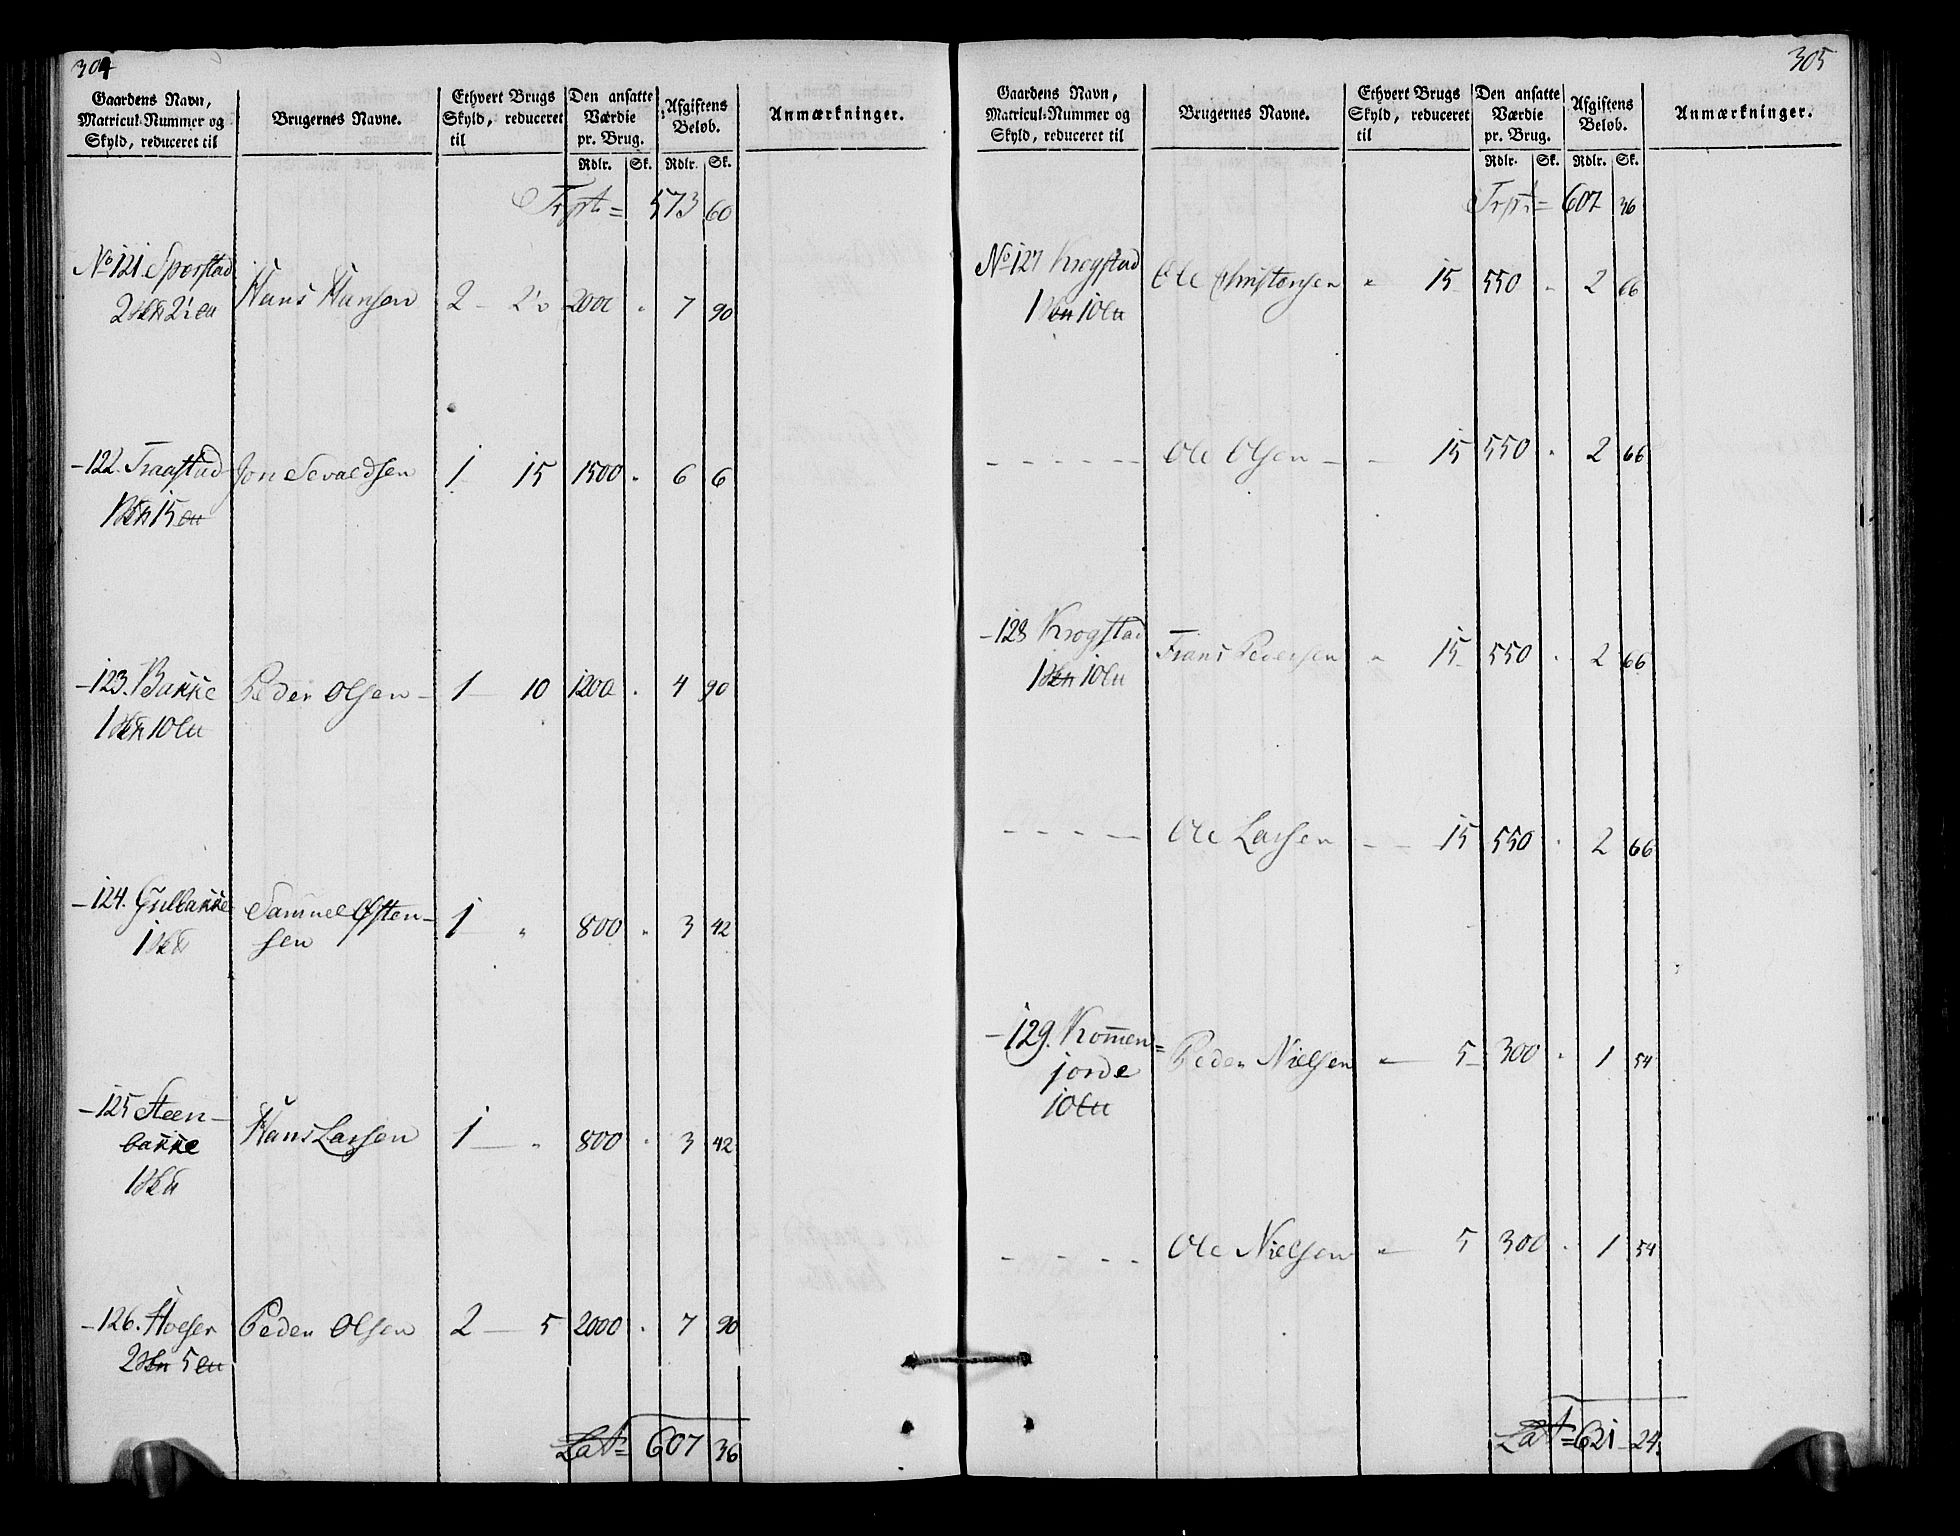 304
Gaardens Navn, Matricul-Nummer og Skyld, reduceret til
Brugernes Navne.
Ethvert Brugs Skyld, reduceret til
Den ansatte Værdie pr. Brug.
Afgiftens Beløb.
Anmærkninger.
Rdlr. Sk. Rdlr. Sk.
Trpt= 573 60
No 121. Sporstad Hans Hansen 2 - 2½ 2000 " 7 90
2 2½
- 122. Traastad Jon Sevaldsen 1 15 1500 " 6 6
1 15
- 123. Bakke Peder Olsen - 1 - 10 1200 " 4 90
1 10
- 124. Gulbakke Samuel Østen- 1 - " 800 " 3 42
1 sen
- 125 Steen- Hans Larsen 1 - " 800 " 3 42
bakke
1
- 126. Peder Olsen 2 - 5 2000 " 7 90
2 5
Lat= 607 36
305
Gaardens Navn, Matricul-Nummer og Skyld, reduceret til
Brugernes Navne.
Ethvert Brugs Skyld, reduceret til
Den ansatte Værdie pr. Brug.
Afgiftens Beløb.
Anmærkninger.
Rdlr. Sk. Rdlr. Sk.
Trpt= 607 36
No 127 Krogstad Ole Christensen " 15 550 " 2 66
1 10
- - - - - - Ole Olsen - - 15 550 " 2 66
- 128 Krogstad Frans Pedersen " 15 550 " 2 66
1 10
- - - - - Ole Larsen - - 15 550 " 2 66
- 129. Kom̅en= Peder Nielsen " - 5 300 " 1 54
jorde
10
- - - - Ole Nielsen " - 5 300 " 1 54
Lat= 621 - 24.